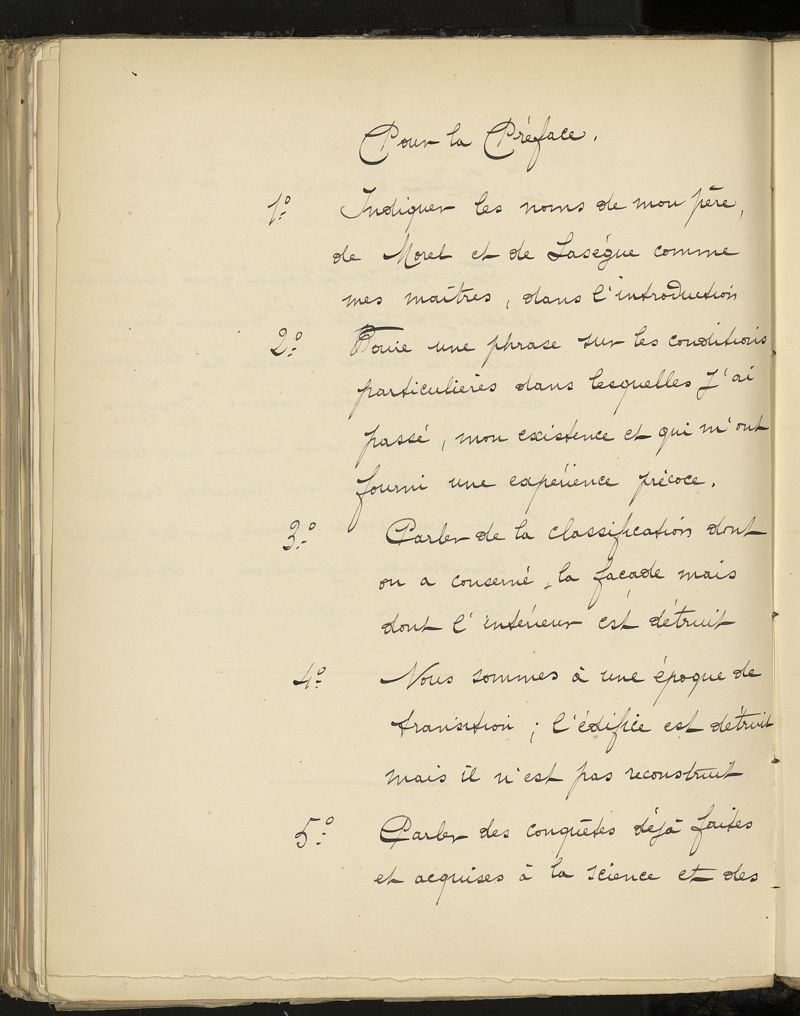 Pour la Préface.
1º Indiquer les noms de mon père,
de Morel et de Lasègue comme
mes maîtres, dans l'introduction
2º Faire une phrase sur les conditions
particulières dans lesquelles j'ai
passé, mon existence et qui m'ont
fourni une expérience précoce.
3º Parler de la classification dont
on a conservé, la façade mais
dont l'intérieur est détruit
4º Nous sommes à une époque de
transition ; l'édifice est détruit
mais il n'est pas reconstruit
5º Parler des conquêtes déjà faites
et acquises à la science et des